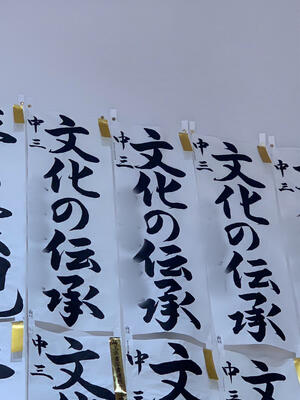 中三
文化の伝承
中三
文化の伝承
中三
文化の伝承
中
中三
文
中三
文
中三
文